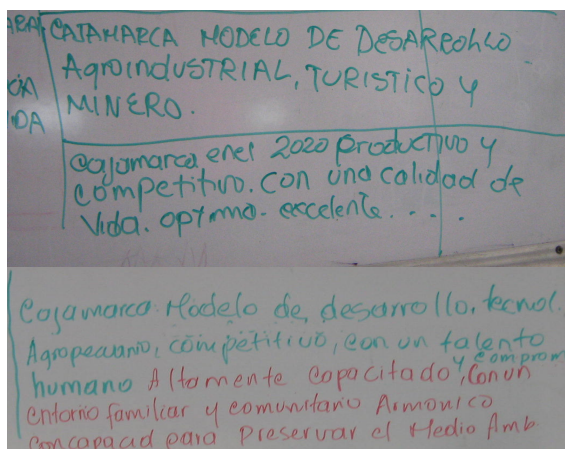 CAJAMARCA MODELO DE DESARROLLO
AgroindUSTRIAL, TURISTICO Y
MINERO.
DA
Cajamarca enel 2020 productivo y
competitivo. con una calidad de
vida. optimo. excelente. . . .
Cajamarca Modelo de desarrollo, tecnol.
Agropecuario, competitivo, con un talento
humano Altamente capacitado y comprom
, con un
entorno familiar y comunitario Armonico
concapacid para Preservar el Medio Amb.